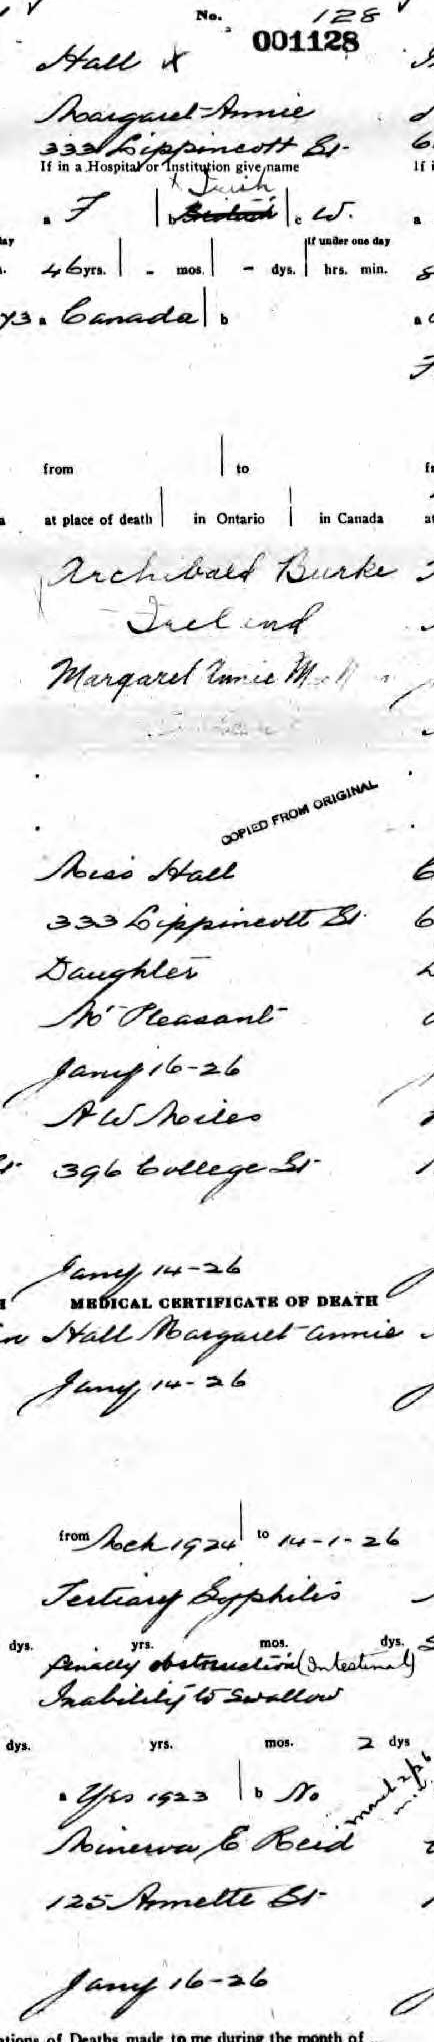 No. 128
001128
Hall X
Margaret-Annie
333 Lippincott St.
If in a Hospital or Institution give name
x Irish
a F b British c W.
If under one day
46 yrs. - mos. - dys. hrs. min.
a Canada b
from to
at place of death in Ontario in Canada
Archibald Burke
Ireland
Margaret Annie
COPIED FROM ORIGINAL
Miss Hall
333 Lippincott St.
Daughter
Mt Pleasant
Jany 16-26
A W Miles
396 College St.
Jany 14-26
MEDICAL CERTIFICATE OF DEATH
Hall Margaret Annie
Jany 14-26
from Mch 1924 to 14-1-26
Tertiary Syphilis
dys. yrs. mos. dys.
finally obstruction (Intestinal)
Inability to swallow
dys. yrs. mos. 2 dys
a Yes 1923 b No
March 2/26
Minerva E Reid
125 Annette St.
Jany 16-26
ations of Deaths made to me during the month of